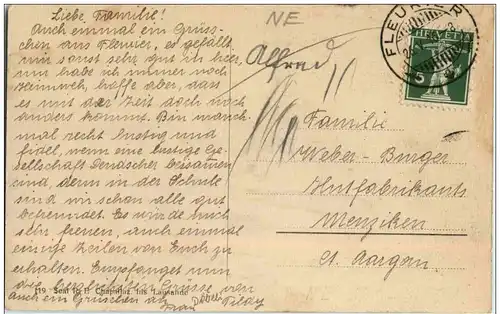 Liebe Familie!
Auch einmal ein Grüss-
chen aus Fleurier, es gefällt
mir sonst sehr gut hier,
nur habe ich immer noch
Heimweh, hoffe aber, dass
es mit der Zeit doch noch
anders kommt. Bin manch-
mal recht lustig und
fidel, wenn eine lustige Ge-
sellschaft beisammen
sind, denn in der Schule
sind wir schon alle gut
befreundet. Es würde mich
sehr freuen, auch einmal
einige Zeilen von Euch zu
erhalten. Empfanget nun
die herzlichsten Grüsse von
auch ein Grüschen an
Frau
NE
Alfred
FLEURIER
HELVETIA
5
Familie
Weber-Burger
Hutfabrikants
Menziken
Ct. Aargau
119 Seul
Lausanne